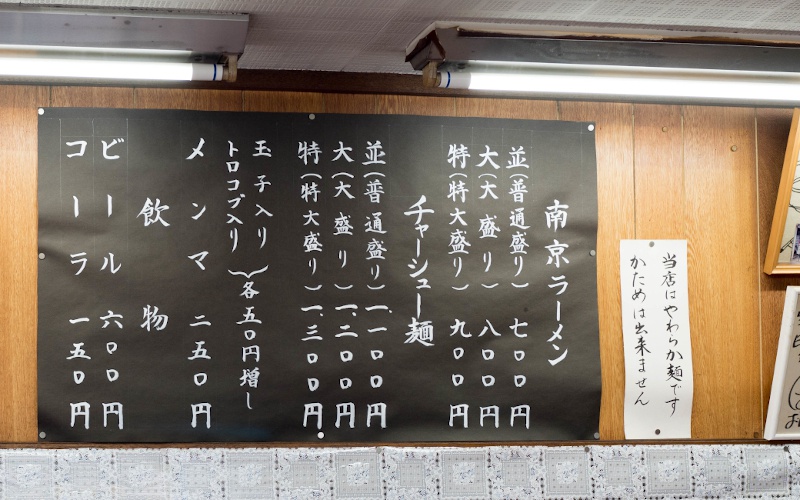 南京ラーメン
並(普通盛り)七〇〇円
大(大盛り)八〇〇円
特(特大盛り)九〇〇円
チャーシュー麺
並(普通盛り)一、一〇〇円
大(大盛り)一、二〇〇円
特(特大盛り)一、三〇〇円
玉子入り
トロコブ入り
各五〇円増し
メンマ 二五〇円
飲物
ビール 六〇〇円
コーラ 一五〇円
当店はやわらか麺です
かためは出来ません